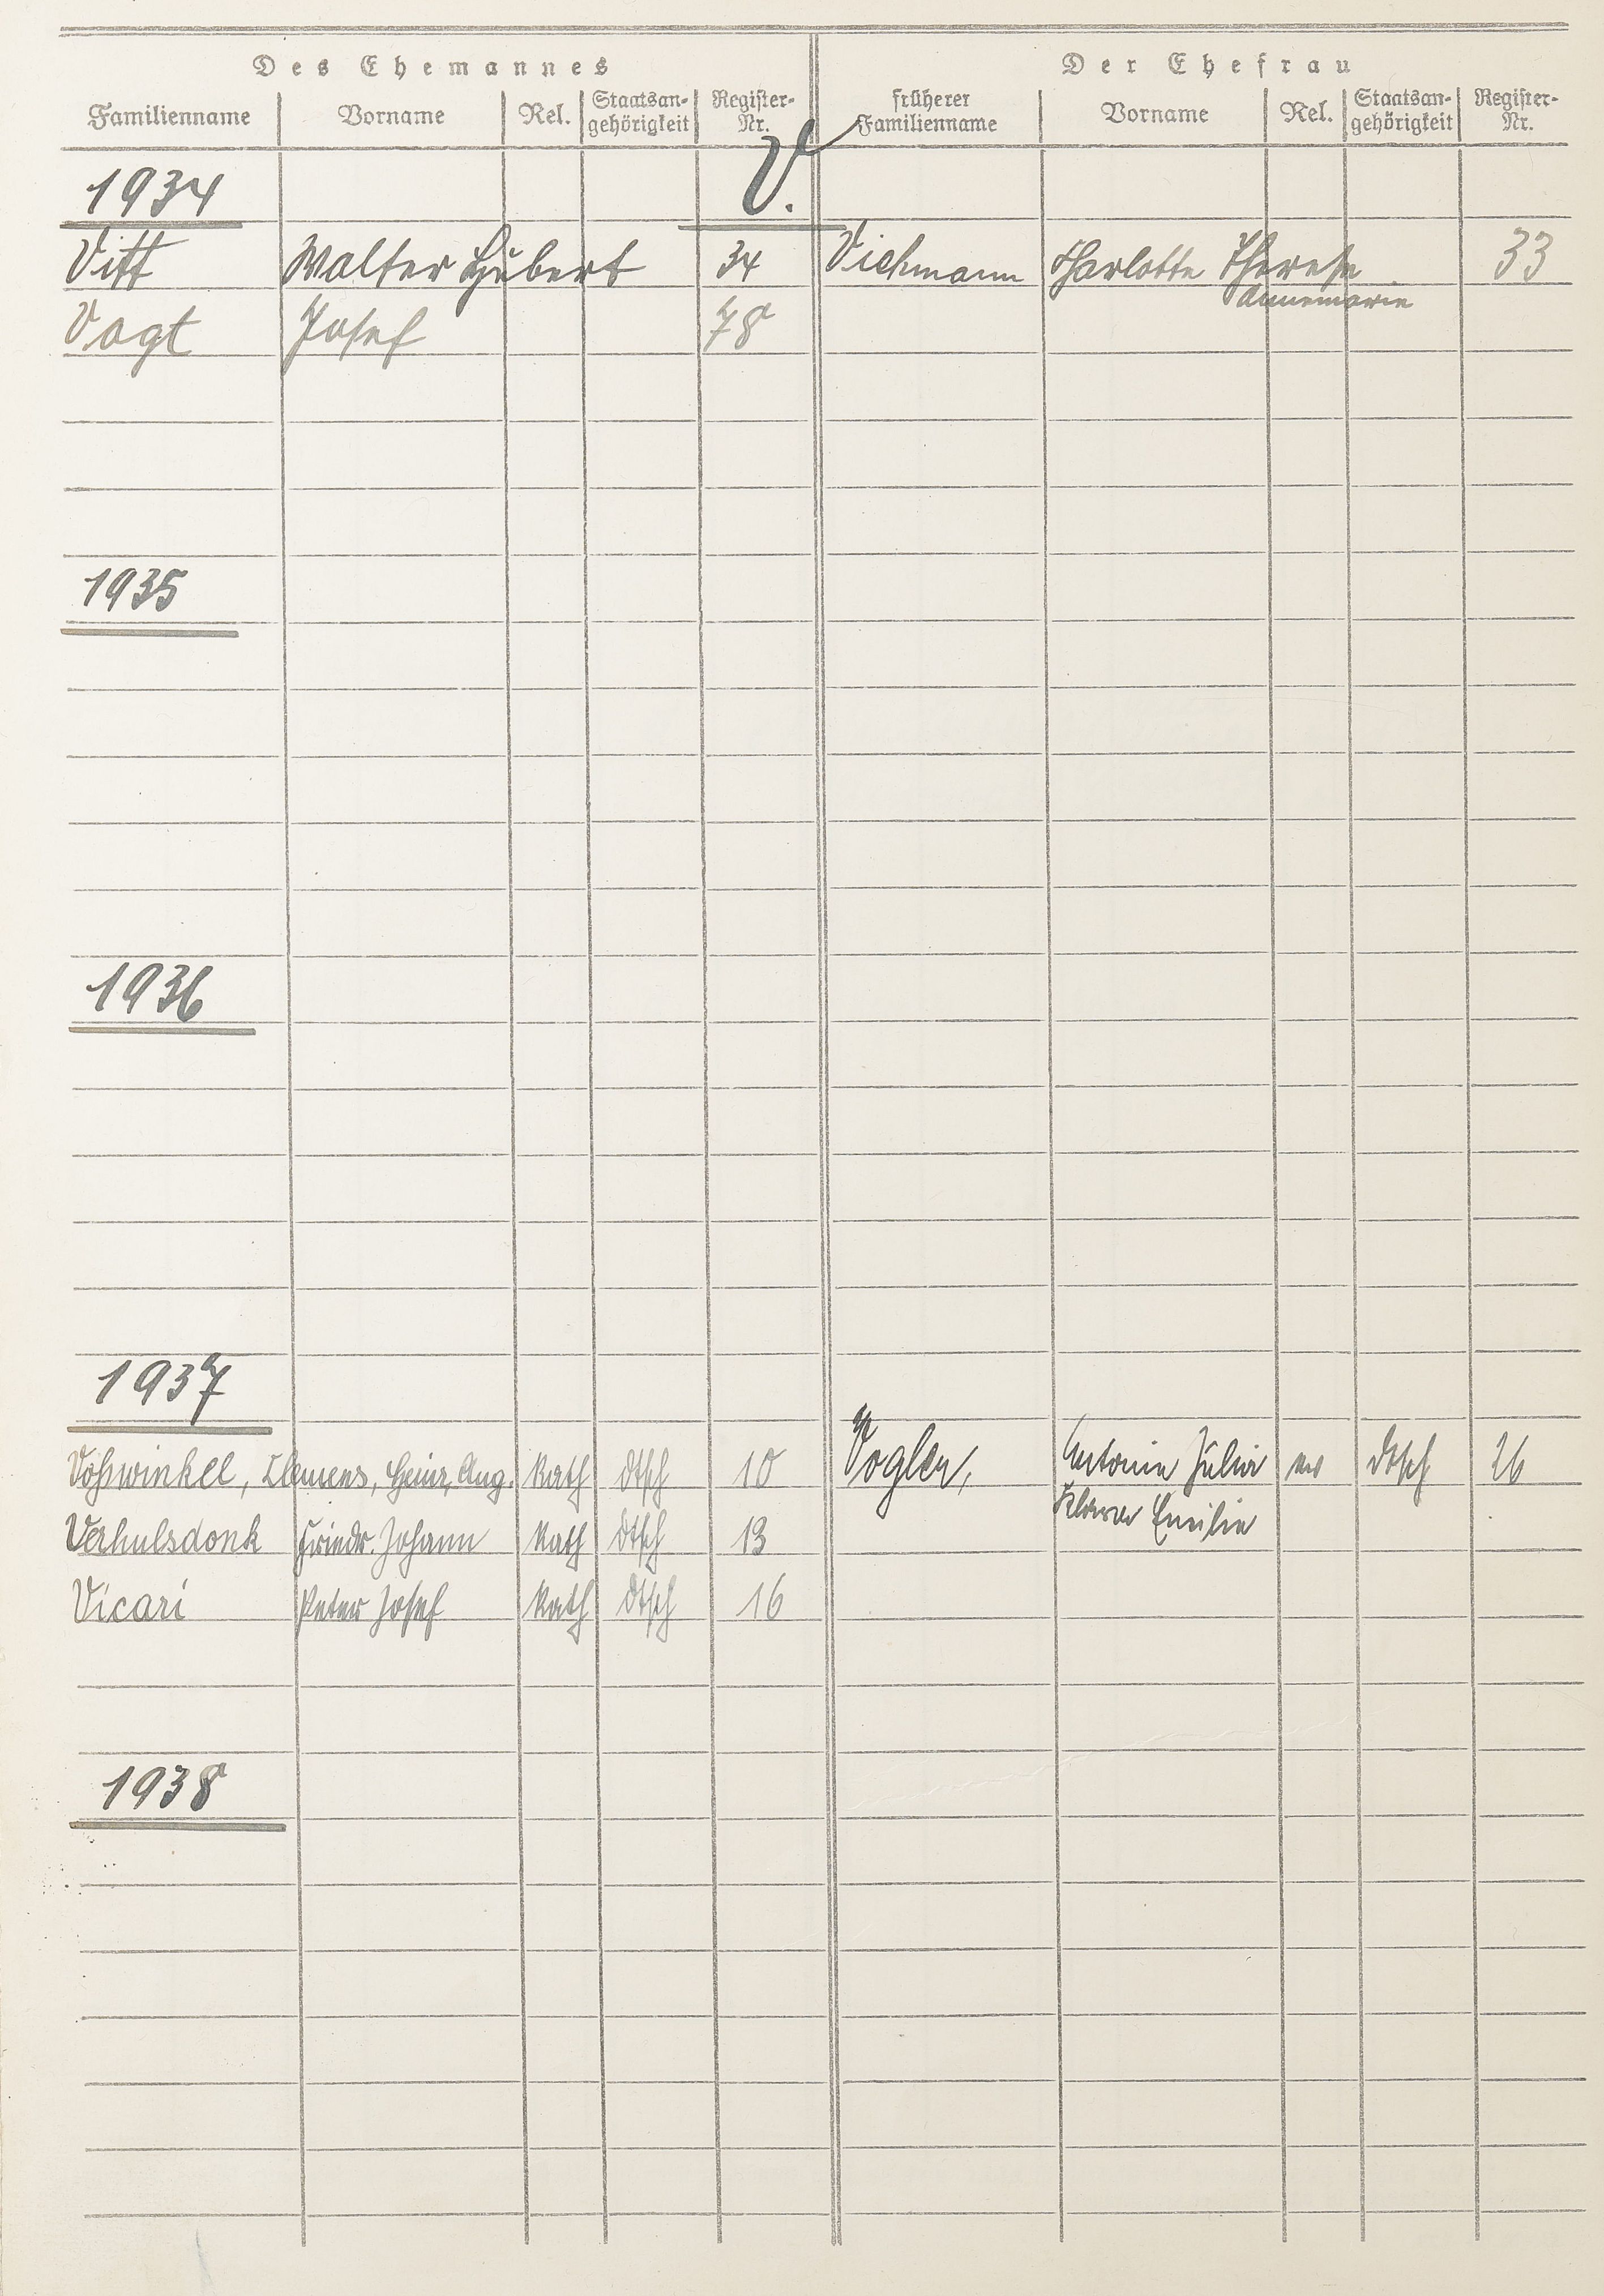 Des Ehemannes Der Ehefrau
Familienname Vorname Rel. Staatsan-gehörigkeit Register-Nr. früherer Familienname Vorname Rel. Staatsan-gehörigkeit Register-Nr.
V.
1934
Vitt Walter Hubert 34 Viehmann Charlotte Therese 33
Annemarie
Vogt Josef 78
1935
1936
1937
Voßwinkel, Clemens, Heinr, Aug. Kath dtsch 10 Vogler, Antonie Julia ev dtsch 26
Klara Emilie
Verhulsdonk Friedr. Johann Kath dtsch 13
Vicari Peter Josef Kath dtsch 16
1938